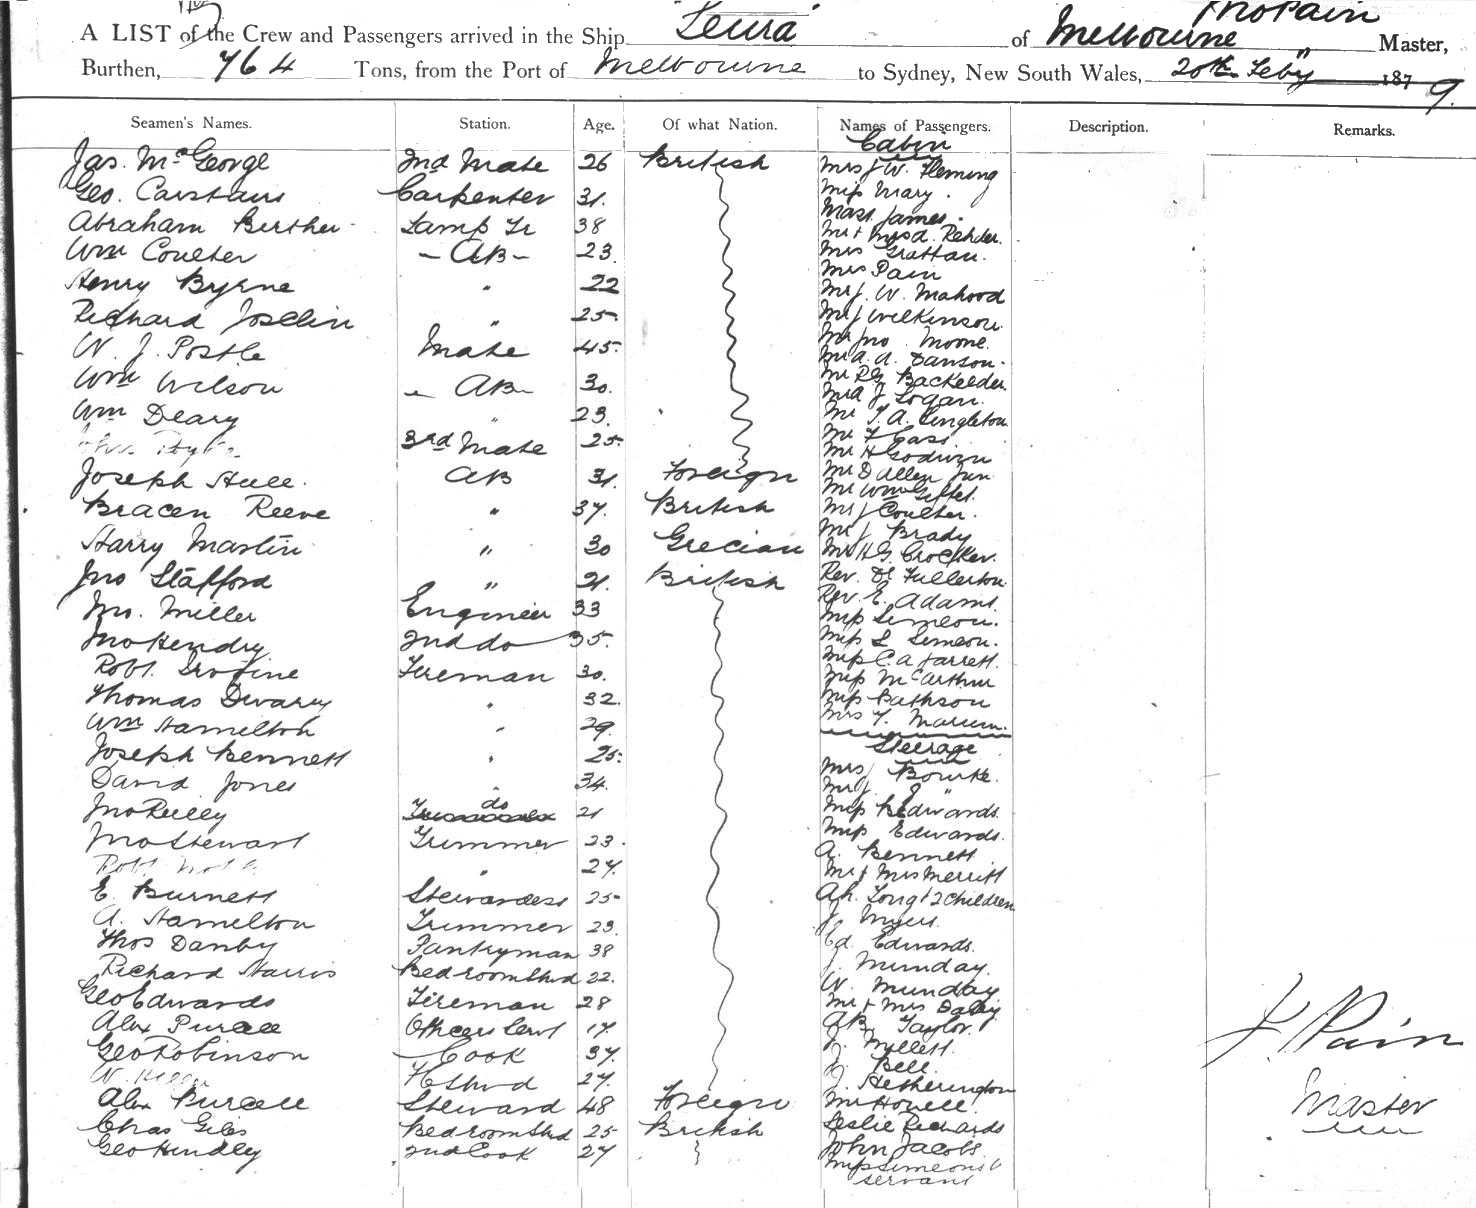 Thos Pain
A LIST of the Crew and Passengers arrived in the Ship "Leura" of Melbourne Master,
Burthen, 764 Tons, from the Port of Melbourne to Sydney, New South Wales, 20th Feby 1879.
Seamen's Names. Station. Age. Of what Nation. Names of Passengers. Description. Remarks.
Cabin
Jas. McGeorge 2nd Mate 26 British Mrs J W. Fleming
Geo. Carstairs Carpenter 31. Miss Mary.
Mast. James.
Abraham Berther Lamp Tr 38 Mr + Mrs A. Rehder.
Wm Coulter - AB - 23. Mrs Grattan.
Mrs Pain
Henry Byrne " 22 Mr J. W. Mahood
Richard Joselin " 25. Mr J Wilkinson
Mr Jno. Moore.
W. J. Postle Mate 45. Mr A. A. Dawson.
Wm Wilson - AB - 30. Mr R G Backelder.
Mr A J Logan.
Wm Deary " 23. Mr T. A. Singleton
3rd Mate 25. Mr F Gass
Mr H Godwin
Joseph Hull. AB 31. Foreign Mr D Allen Jun
Mr Wm
Bracen Reeve " 37. British Mr J Coulter.
Mr J Brady
Harry Martin " 30 Grecian Mr H G Crocker.
Jno Stafford " 21. British Rev. Dr Fullerton.
Rev. E. Adams.
Jno. Miller Engineer 33 Miss Simeon.
Jno Hendry 2nd do 35. Miss L Simeon.
Miss C. A Jarrett.
Robt. Irvine Fireman 30. Miss McArthur
Thomas Dwary " 32. Miss Bathson
Wm Hamilton " 29. Mrs T.
Steerage
Joseph Bennett " 25. Mrs Bourke.
David Jones " 34. Mr J. "
Jno Reilly do 21 Miss Edwards.
Jno Stewart Trimmer 23. Miss Edwards.
A. Bennett
Robt " 27. Mr + Mrs Merritt
E. Burnett Stewardess 25 Ah. Long + 2 children
A. Hamilton Trimmer 23. J. Myers.
Thos Danby Pantryman 38 Ed. Edwards.
Richard Harris Bedroom Stwd 22. J. Munday.
W. Munday
Geo Edwards Fireman 28 Mr + Mrs Daley
Alex Purcell Officers Servt 17. Taylor.
Geo Robinson Cook 37. J. Millett.
J. Bell.
W. Stwd 27. J. Hetherington
Alex Purcell Steward 48 Foreign Mr Howell.
Chas Giles Bedroom Stwd 25 British Leslie Richards
Geo Hindley 2nd Cook 27 John Jacobs
Miss Simeons
servant
T. Pain
Master